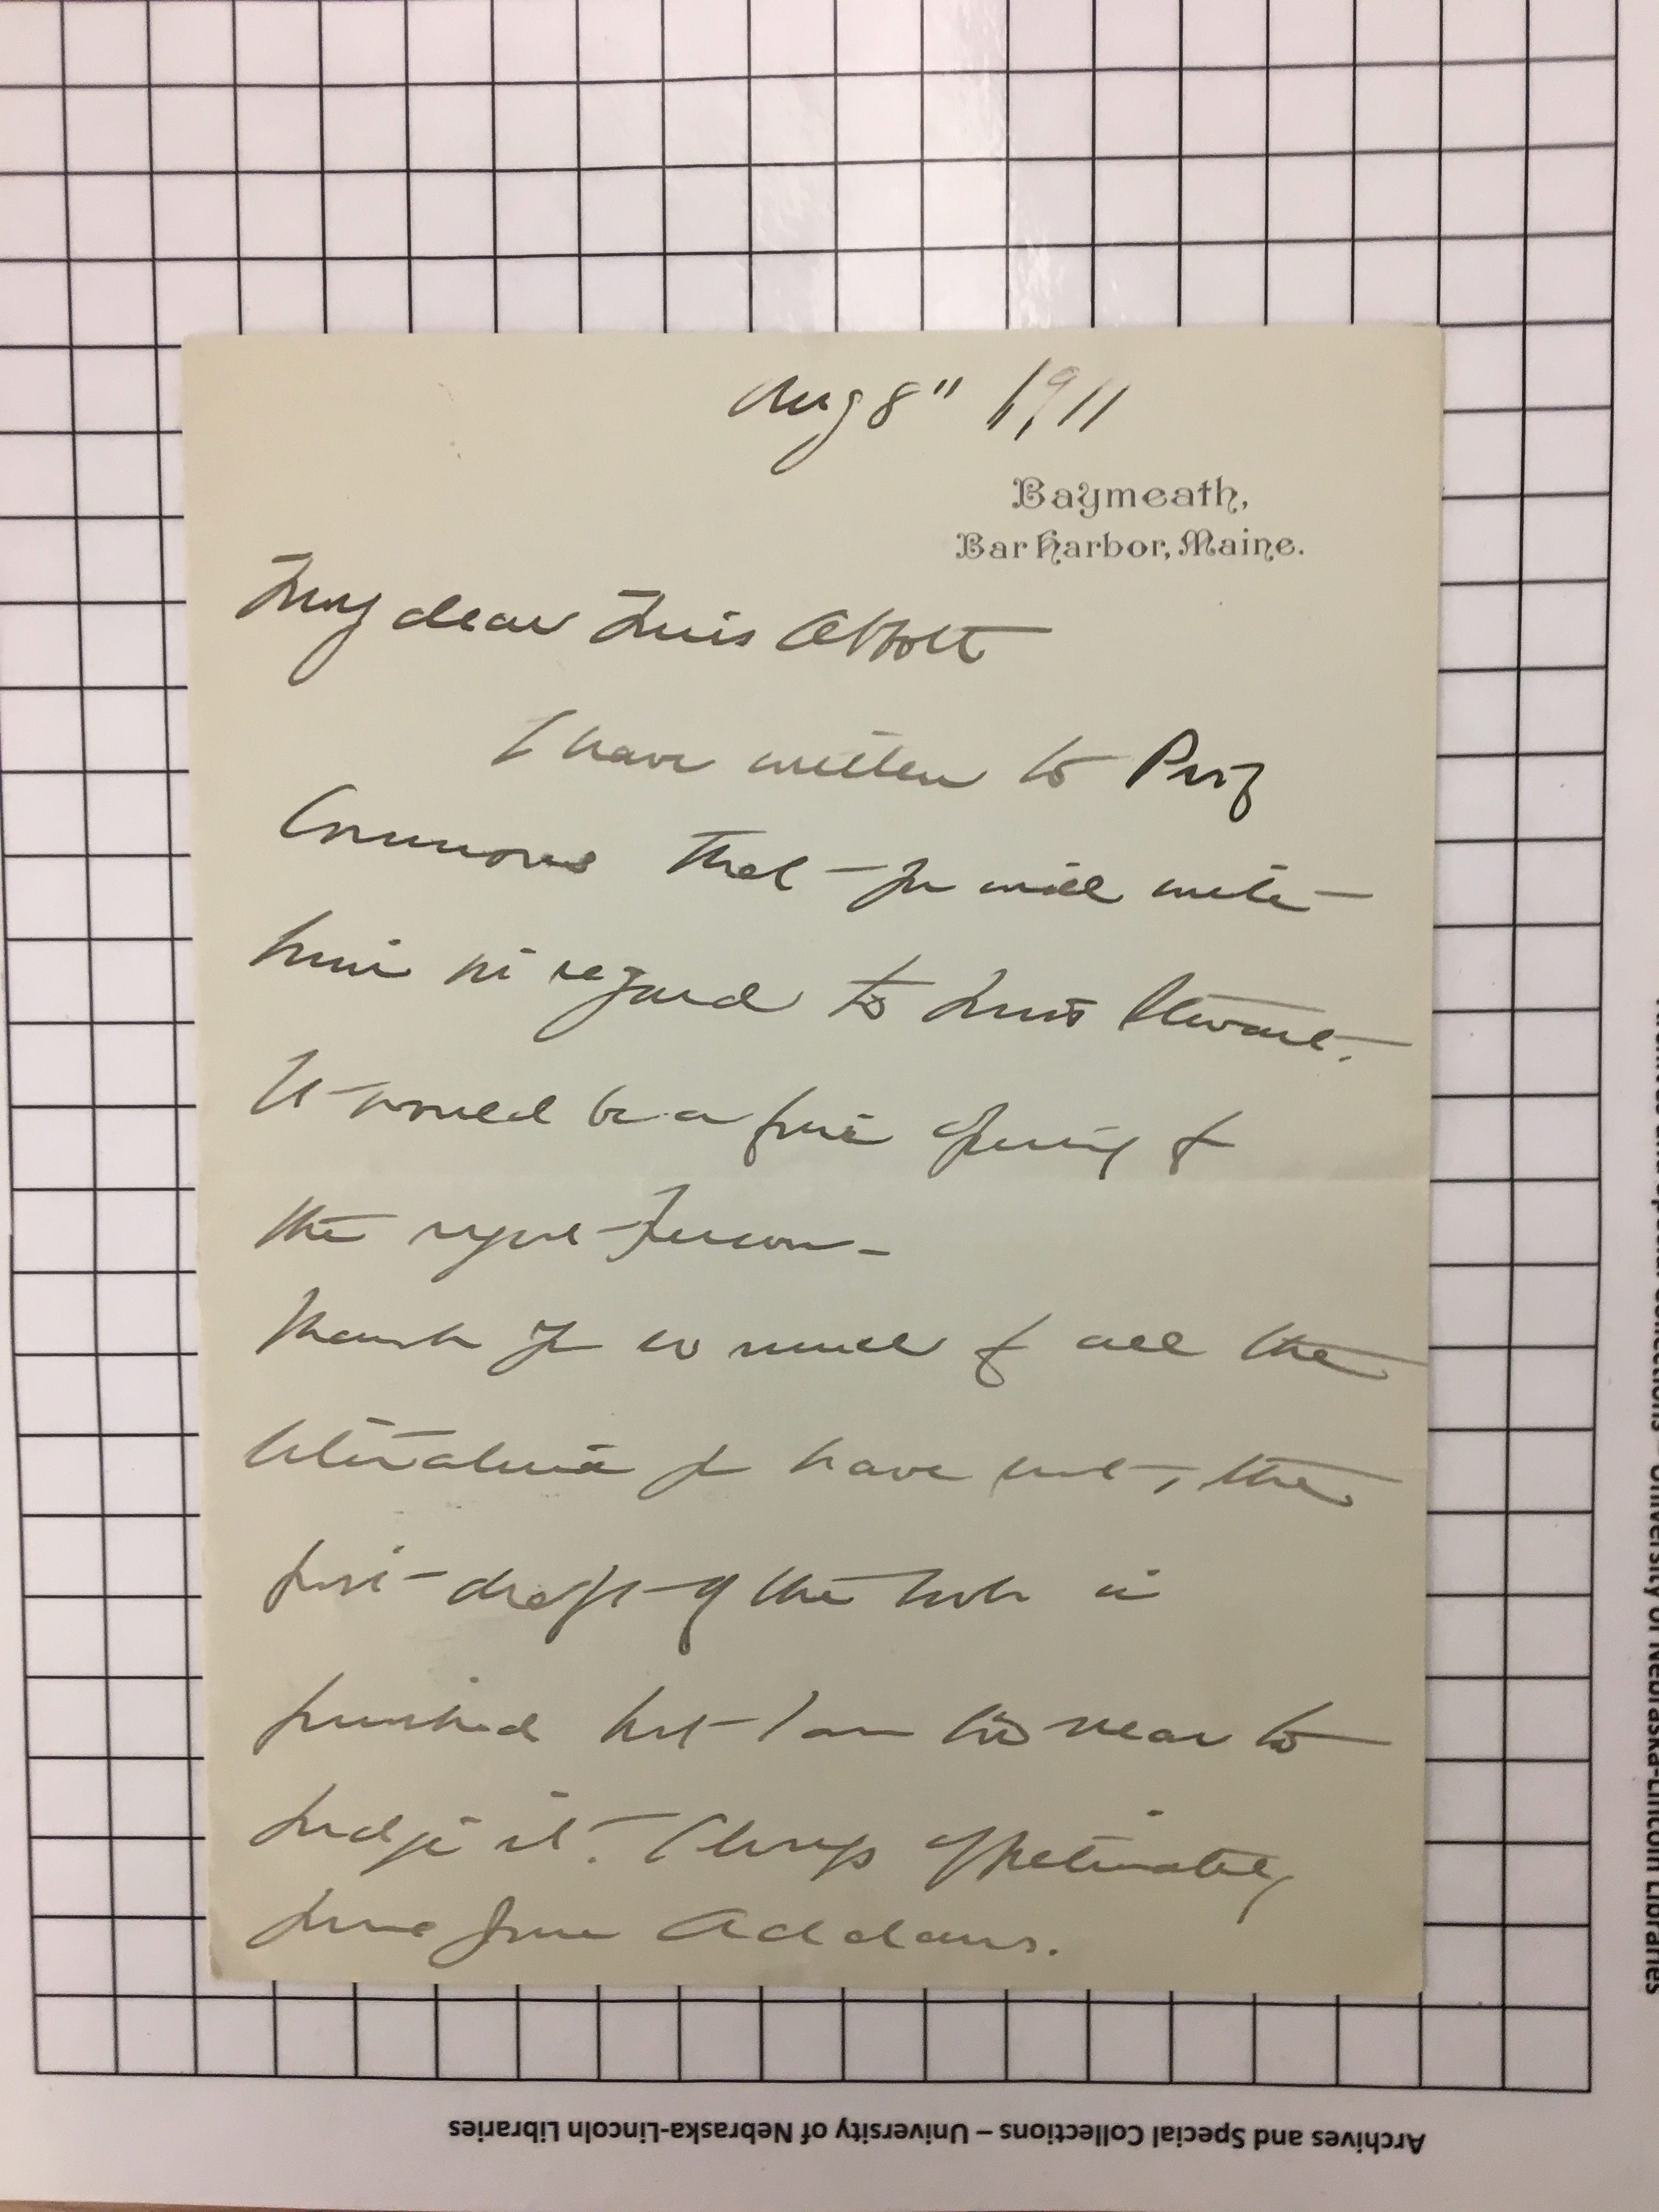 Aug 8" 1911
Baymeath,
Bar Harbor, Maine.
My dear Miss Abbott
I have written to Prof
Commons that you will write
him in regard to Miss Stewart.
It would be a fine opening for
the right person –
Thank you so much for all the
literature you have sent, the
first draft of the book is
finished but I am too near to
judge it. Always affectionately
yours Jane Addams.
Archives and Special Collections – University of Nebraska-Lincoln Libraries
Archives and Special Collections – University of Nebraska-Lincoln Libraries